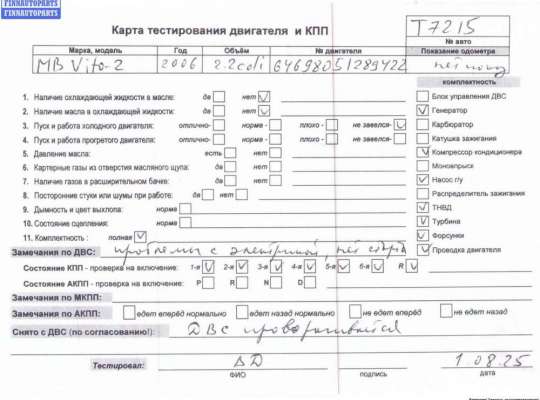 FINNAUTOPARTS
FINNAUTOPARTS
Карта тестирования двигателя и КПП
T7215
№ авто
Марка, модель Год Объём № двигателя Показание одометра
MB Vito-2 2006 2.2cdi 64698051289422
комплектность
1. Наличие охлаждающей жидкости в масле: да нет Блок управления ДВС
2. Наличие масла в охлаждающей жидкости: да нет Генератор
3. Пуск и работа холодного двигателя: отлично- норма - плохо - не завелся- Карбюратор
4. Пуск и работа прогретого двигателя: отлично- норма - плохо - не завелся- Катушка зажигания
5. Давление масла: есть нет Компрессор кондиционера
6. Картерные газы из отверстия масляного щупа: да нет Моновпрыск
7. Наличие газов в расширительном бачке: да нет Насос г/у
8. Посторонние стуки или шумы при работе: да нет Распределитель зажигания
9. Дымность и цвет выхлопа: норма ТНВД
10. Состояние сцепления: норма Турбина
11. Комплектность : полная Форсунки
Замечания по ДВС: проблемы с электрикой, нет Проводка двигателя
Состояние КПП - проверка на включение: 1-я 2-я 3-я 4-я 5-я 6-я R
Состояние АКПП - проверка на включение: P R N D
Замечания по МКПП:
Замечания по АКПП: едет вперёд нормально едет назад нормально не едет вперёд не едет назад
Снято с ДВС (по согласованию!): ДВС проворачивается
Тестировал: ВД 1.08.25
ФИО подпись дата